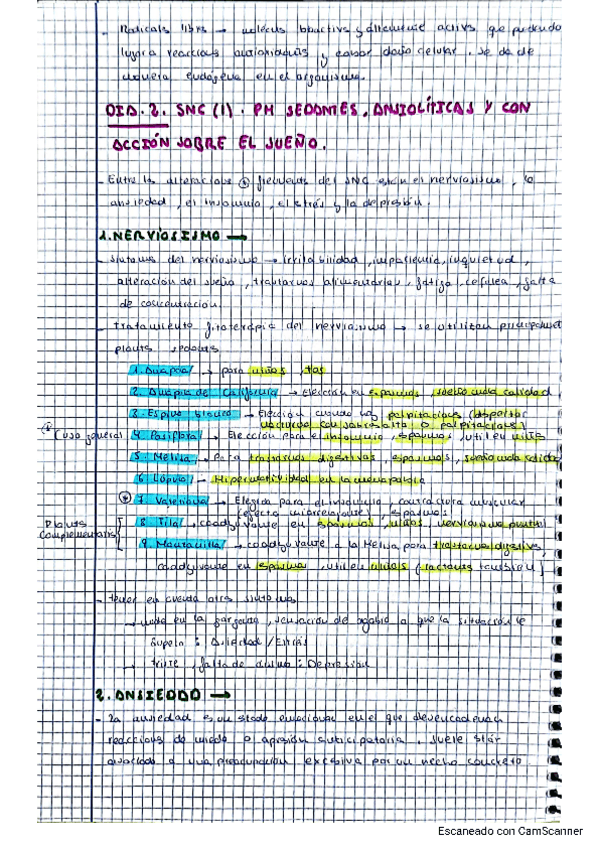 - Radicales libres → moléculas bioactivas y altamente activas que pueden
lugar a reacciones y causar daño celular. Se da de
manera endógena en el organismo.
DIA. 2. SNC (1). PM SEDANTES, ANSIOLÍTICAS Y CON
ACCIÓN SOBRE EL SUEÑO.
- Entre las alteraciones frecuentes del SNC están el nerviosismo, la
ansiedad, el insomnio, el estrés y la depresión.
1. NERVIOSISMO →
- Síntomas del nerviosismo → irritabilidad, impaciencia, inquietud,
alteración del sueño, trastornos alimentarios, fatiga, cefalea, falta
de concentración.
- Tratamiento fitoterapia del nerviosismo → se utilizan
plantas sedantes
1. Amapola → para niños, tos
2. Amapola de California → Elección en espasmos, sueño mala calidad
3. Espino blanco → Elección cuando hay palpitaciones (despertar
nocturnos con sobresalto o palpitaciones)
(uso general 4. Pasiflora → Elección para el insomnio, espasmos, útil en niños
5. Melisa → Para trastornos digestivos, espasmos, sueño mala calidad
6. Lúpulo → Hiperactividad en la menopausia
7. Valeriana → Elegida para el insomnio, contractura muscular
(efecto miorrelajante), espasmos
Plantas
complementarias
8. Tila → coadyuvante en espasmos, niños, nerviosismo
9. Manzanilla → coadyuvante a la Melisa para trastornos digestivos,
coadyuvante en espasmos, útil en niños (lactantes también)
- Tener en cuenta otros síntomas
→ nudo en la garganta, sensación de agobio o que la situación le
supera: Ansiedad / Estrés
→ Triste, falta de ánimo: Depresión
2. ANSIEDAD →
- La ansiedad es un estado emocional en el que desencadenan
reacciones de miedo o aprensión anticipatoria. Suele estar
asociado a una preocupación excesiva por un hecho concreto
Escaneado con CamScanner